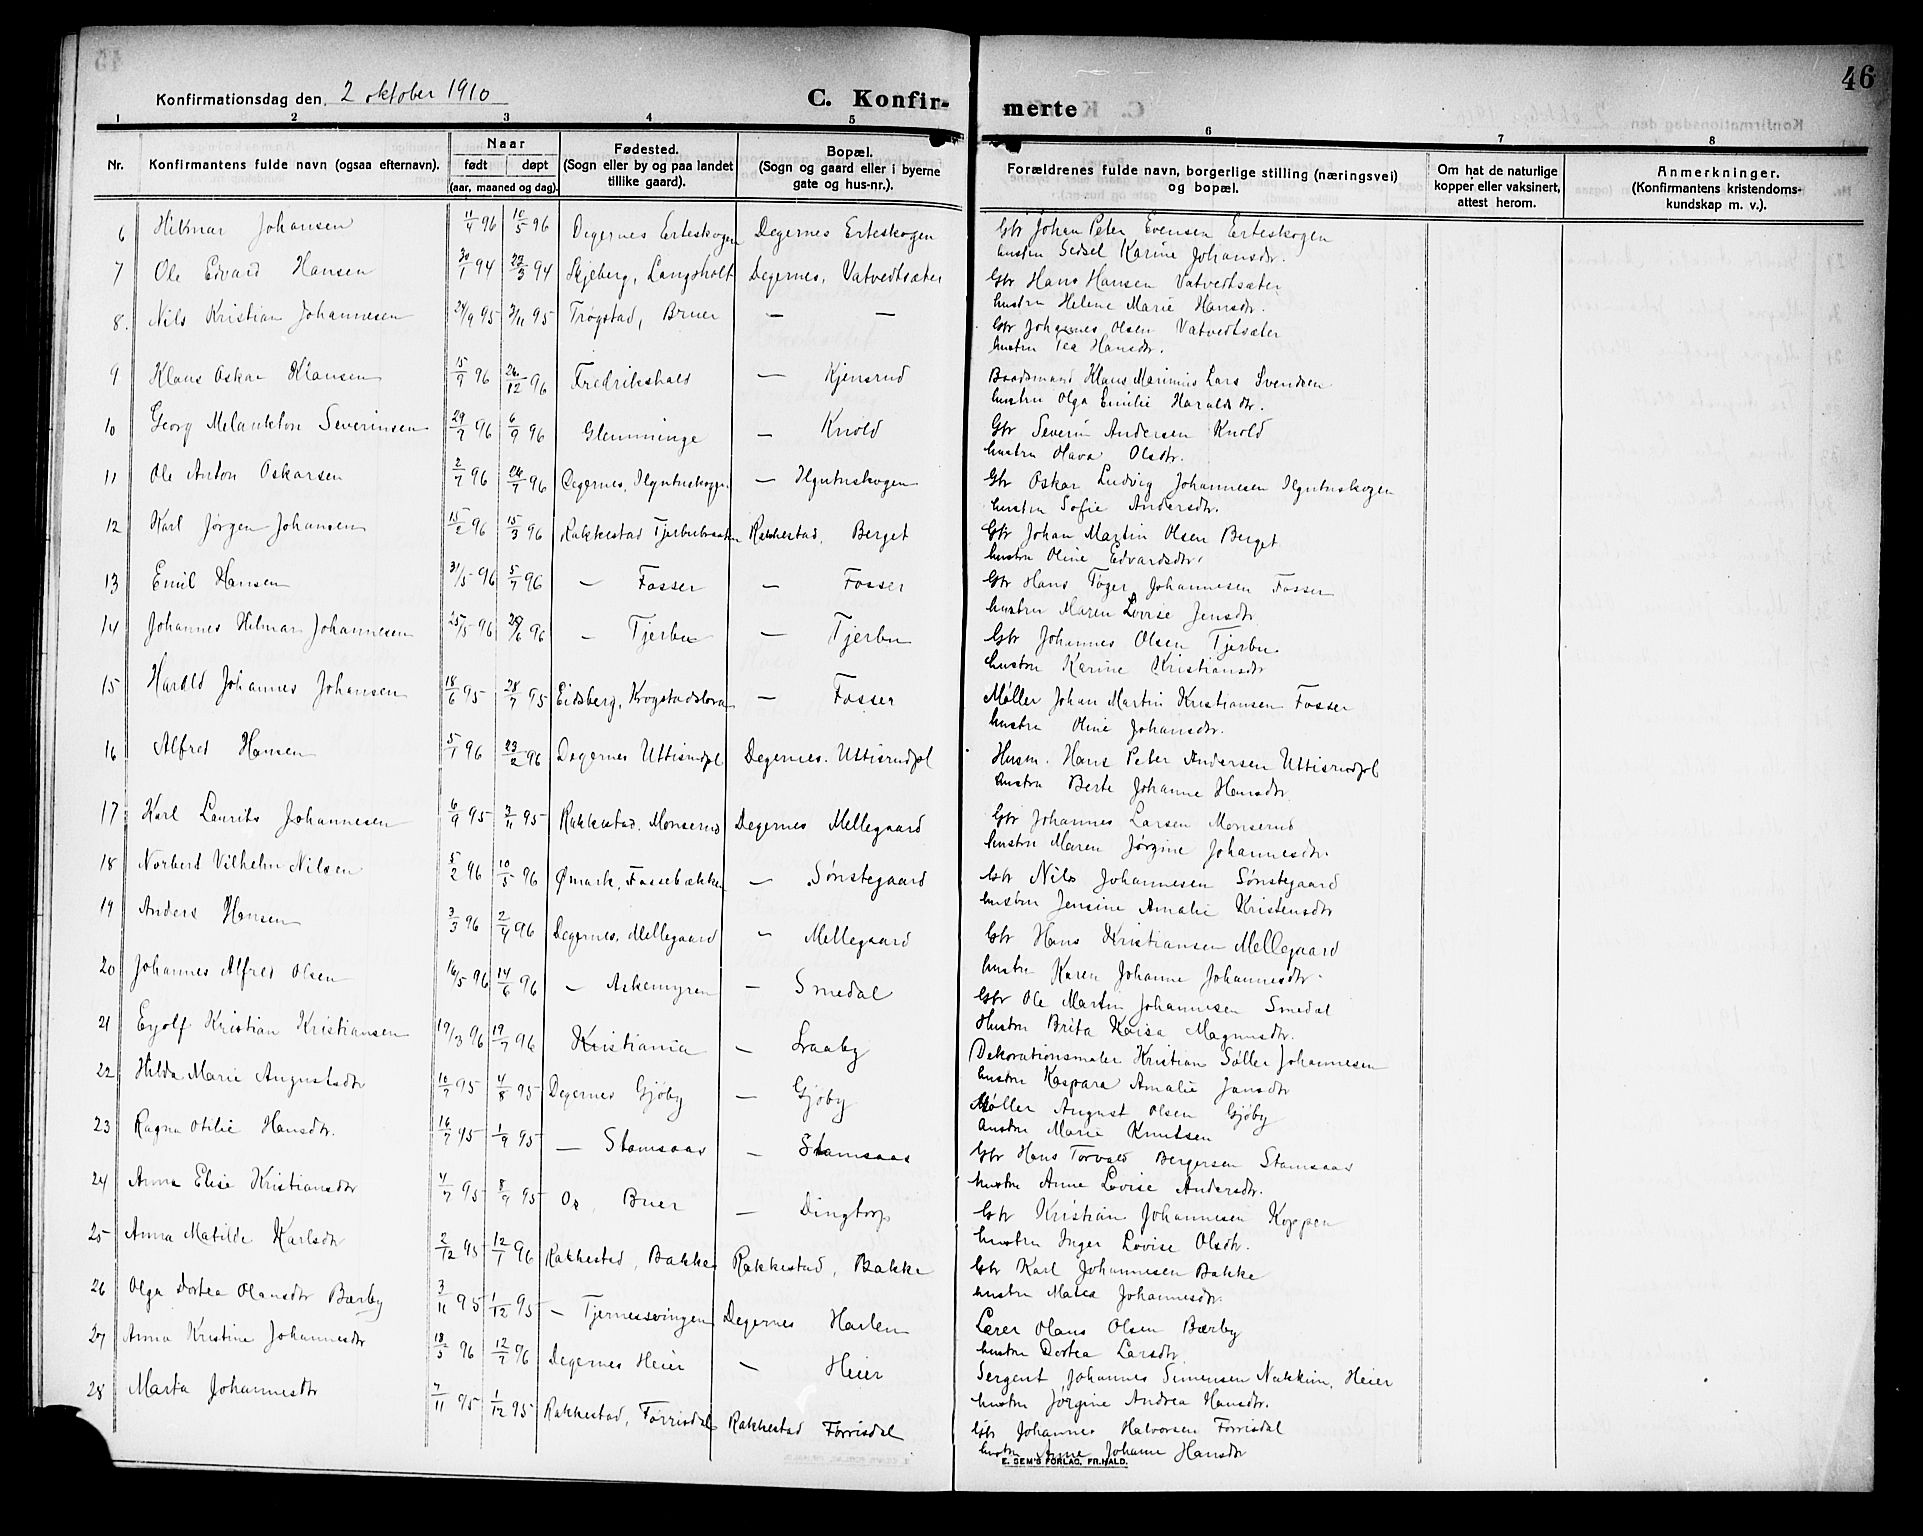 46
Konfirmationsdag den, 2 oktober 1910 C. Konfir- merte
1 2 3 4 5 6 7 8
Nr. Konfirmantens fulde navn (ogsaa efternavn). Naar født døpt (aar, maaned og dag) Fødested. (Sogn eller by og paa landet tillike gaard). Bopæl. (Sogn og gaard eller i byerne gate og hus-nr.). Forældrenes fulde navn, borgerlige stilling (næringsvei) og bopæl. Om hat de naturlige kopper eller vaksinert, attest herom. Anmerkninger. (Konfirmantens kristendoms-kundskap m. v.).
6 Hilmar Johansen 11/4 96 10/5 96 Degernes Erteskogen Degernes Erteskogen Gbr Johan Peter Evensen Erteskogen
hustru Sedsel Karine Johansdr.
7 Ole Edvard Hansen 30/1 94 22/3 94 Skjeberg, Langsholt Degernes, Vatvedtsæter Gbr Hans Hansen Vatvedtsæter
hustru Helene Marie Hansdr.
8. Nils Kristian Johannesen 24/9 95 3/11 95 Trøgstad, Bruer — — Gbr Johannes Olsen Vatvedtsæter
hustru Tea Hansdr.
9 Klaus Oskar Klausen 15/9 96 26/12 96 Fredrikshald — Kjensrud Baadsmand Klaus Marinius Lars Svendsen
hustru Olga Emilie Haraldsdr.
10 Georg Melankton Severinsen 29/7 96 6/9 96 Glemminge — Knold Gbr Severin Andersen Knold
hustru Hava Olsdr.
11 Ole Anton Oskarsen 2/7 96 26/7 96 Degernes, Ilgutuskogen — Ilgutuskogen Gbr Oskar Ludvig Johannesen Ilgutuskogen
hustru Sofie Andersdr.
12 Karl Jørgen Johansen 15/2 96 15/3 96 Rakkestad Tjerbubraaten Rakkestad, Berget Gbr Johan Martin Olsen Berget
hustru Oline Edvardsdr.
13 Emil Hansen 31/5 96 5/7 96 — Fosser — Fosser Gbr Hans Tøger Johannesen Fosser
hustru Maren Lovise Jensdr
14 Johannes Hilmar Johannesen 25/5 96 29/6 96 — Tjerbu — Tjerbu Gbr Johannes Olsen Tjerbu.
hustru Karine Kristiansdr
15 Harald Johannes Johansen 18/6 95 28/7 95 Eidsberg, Krogstadslora — Fosser Møller Johan Martin Kristiansen Fosser
hustru Oline Johansdr.
16 Alfred Hansen 5/1 96 23/2 96 Degernes Uttisrudpl Degernes. Uttisrudpl Husm. Hans Peter Andersen Uttisrudpl
hustru Berte Johanne Hansdr.
17 Karl Laurits Johannesen 6/9 95 3/11 95 Rakkestad. Monserud Degernes Mellegaard Gbr Johannes Larsen Monserud
hustru Maren Jørgine Johannesdr.
18 Norbert Vilhelm Nilsen 5/2 96 10/5 96 Ømark, Fossebækken — Sønstegaard Gbr Nils Johannesen Sønstegaard
hustru Jensine Amalie Kristensdr
19 Anders Hansen 3/3 96 2/4 96 Degernes, Mellegaard — Mellegaard Gbr Hans Kristiansen Mellegaard
hustru Karen Johanne Johannesdr.
20 Johannes Alfred Olsen 16/5 96 14/6 96 — Askemyren — Smedal Gbr Ole Martin Johannesen Smedal
Hustru Brita Kaisa Magnusdr.
21 Eyolf Kristian Kristiansen 19/3 96 19/7 96 Kristiania — Laaby Dekorationsmaler Kristian Søller Johannesen
hustru Kaspara Amalie Jansdr
22 Hilda Marie Augustsdr 10/7 95 4/8 95 Degernes Gjøby — Gjøby Møller August Olsen Gjøby
hustru Marie Knutsen
23 Ragna Otilie Hansdr. 16/7 95 1/9 95 — Stomsaas — Stomsaas Gbr Hans Torvald Bergersen Stomsaas
hustru Anne Lovise Andersdr.
24 Anna Elise Kristiansdr 4/7 95 8/9 95 Os, Buer — Dingtorp Gbr Kristian Johannesen Koppen
hustru Inger Lovise Olsdr.
25 Anna Matilde Karlsdr 2/12 95 12/1 96 Rakkestad, Bakke Rakkestad, Bakke Gbr Karl Johannesen Bakke
hustru Matea Johannesdr.
26 Olga Dortea Olausdr Bærby 3/11 95 1/12 95 — Tjernessvingen Degernes Harlem Lærer Olaus Olsen Bærby
hustru Dortea Larsdr.
27 Anna Kristine Johannesdr 18/5 96 12/7 96 Degernes Heier — Heier Sergent Johannes Simensen Nakkim, Heier
hustru Jørgine Andrea Hansdr.
28 Marta Johannesdr 7/11 95 1/12 95 Rakkestad, Førrisdal Rakkestad Førrisdal Gbr Johannes Halvorsen Førrisdal
hustru Anne Johanne Hansdr
E. SEM'S FORLAG, FR.HALD.